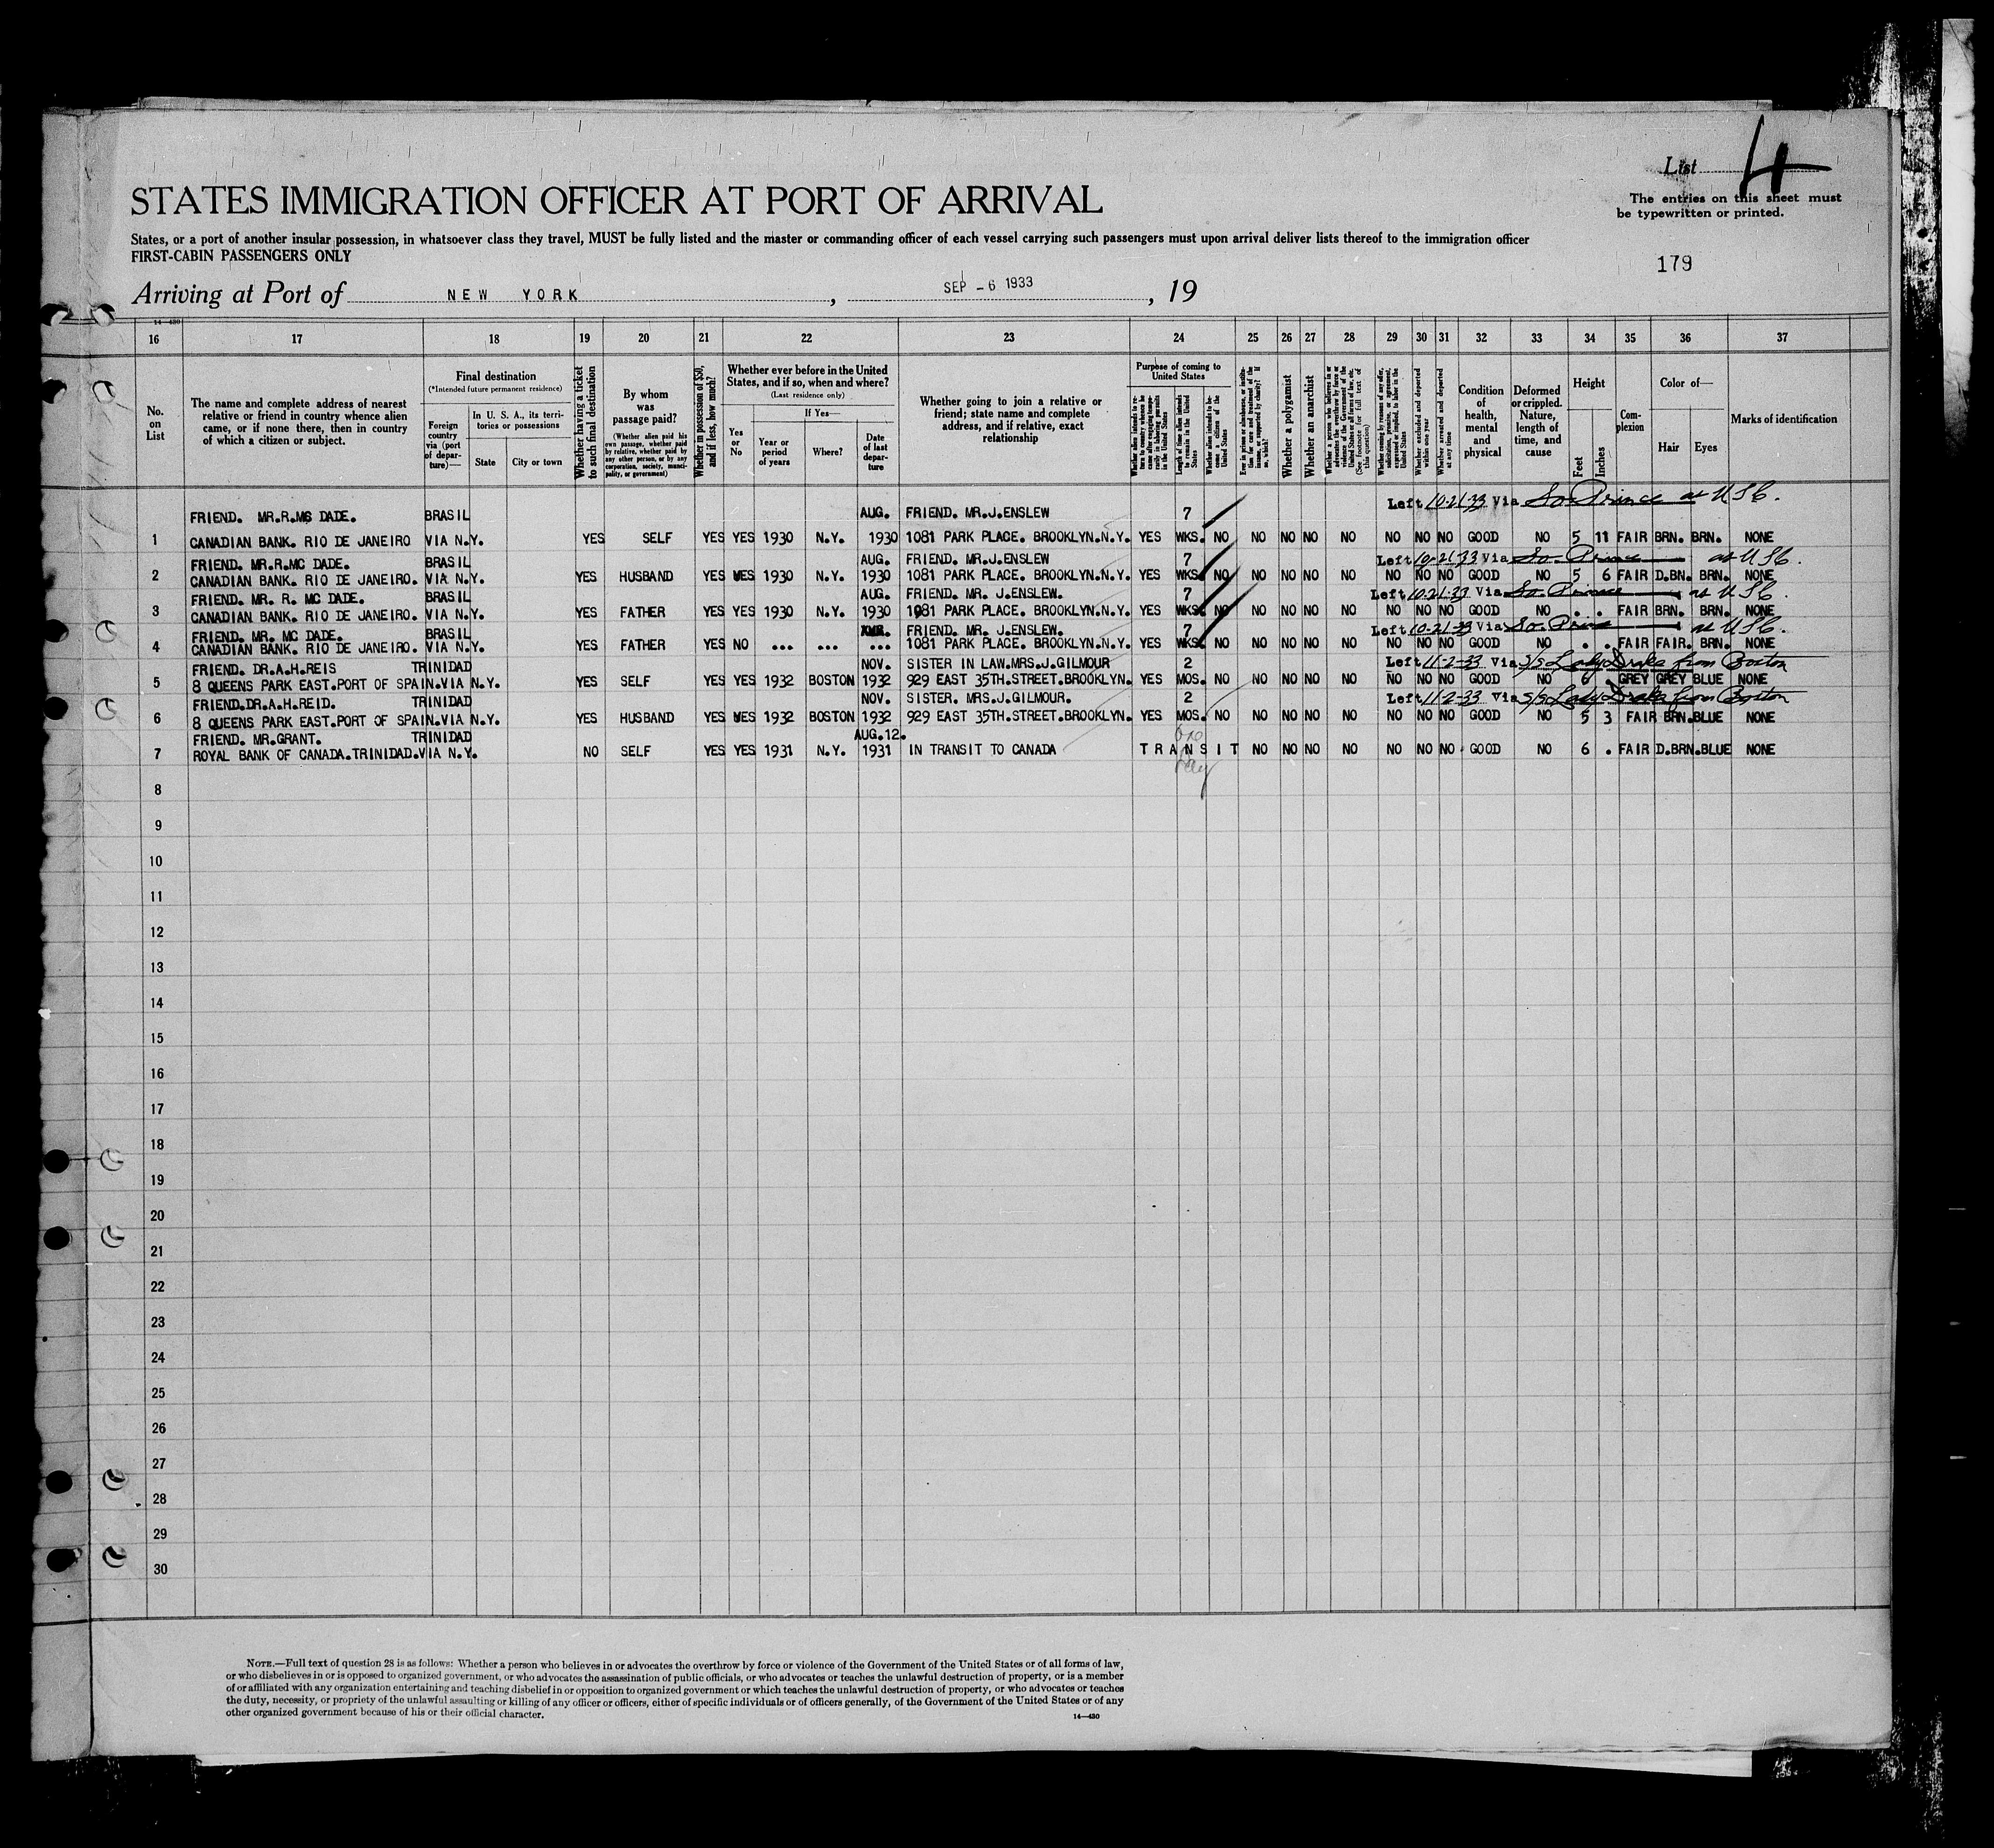 List 4
STATES IMMIGRATION OFFICER AT PORT OF ARRIVAL
The entries on this sheet must
be typewritten or printed.
States, or a port of another insular possession, in whatsoever class they travel, MUST be fully listed and the master or commanding officer of each vessel carrying such passengers must upon arrival deliver lists thereof to the immigration officer
FIRST-CABIN PASSENGERS ONLY
179
Arriving at Port of NEW YORK, SEP - 6 1933, 19
14-430
16 17 18 19 20 21 22 23 24 25 26 27 28 29 30 31 32 33 34 35 36 37
No. on List
The name and complete address of nearest relative or friend in country whence alien came, or if none there, then in country of which a citizen or subject.
Final destination
(*Intended future permanent residence)
Foreign country via (port of departure)—
In U. S. A., its territories or possessions
State
City or town
Whether having a ticket to such final destination
By whom was passage paid?
(Whether alien paid his own passage, whether paid by relative, whether paid by any other person, or by any corporation, society, municipality, or government)
Whether in possession of $50, and if less, how much?
Whether ever before in the United States, and if so, when and where?
(Last residence only)
Yes or No
If Yes—
Year or period of years
Where?
Date of last departure
Whether going to join a relative or friend; state name and complete address, and if relative, exact relationship
Purpose of coming to United States
Length of time alien intends to remain in the United States
Whether alien intends to become a citizen of the United States
Whether a polygamist
Whether an anarchist
Whether excluded and deported within one year
Whether arrested and deported at any time
Condition of health, mental and physical
Deformed or crippled. Nature, length of time, and cause
Height
Feet
Inches
Complexion
Color of—
Hair
Eyes
Marks of identification
Left 10-21-33 Via So. Prince as USC.
FRIEND. MR.R.MC DADE. BRASIL AUG. FRIEND. MR.J.ENSLEW 7
1 CANADIAN BANK. RIO DE JANEIRO VIA N.Y. YES SELF YES YES 1930 N.Y. 1930 1081 PARK PLACE. BROOKLYN.N.Y. YES WKS. NO NO NO NO NO NO NO NO GOOD NO 5 11 FAIR BRN. BRN. NONE
FRIEND. MR.R.MC DADE. BRASIL AUG. FRIEND. MR.J.ENSLEW 7 Left 10-21-33 Via So. Prince as USC.
2 CANADIAN BANK. RIO DE JANEIRO. VIA N.Y. YES HUSBAND YES YES 1930 N.Y. 1930 1081 PARK PLACE. BROOKLYN.N.Y. YES WKS. NO NO NO NO NO NO NO NO GOOD NO 5 6 FAIR D.BN. BRN. NONE
FRIEND. MR. R. MC DADE. BRASIL AUG. FRIEND. MR. J.ENSLEW. 7 Left 10-21-33 Via So. Prince as USC.
3 CANADIAN BANK. RIO DE JANEIRO. VIA N.Y. YES FATHER YES YES 1930 N.Y. 1930 1081 PARK PLACE. BROOKLYN.N.Y. YES WKS. NO NO NO NO NO NO NO NO GOOD NO . . FAIR BRN. BRN. NONE
FRIEND. MR. MC DADE. BRASIL FRIEND. MR. J.ENSLEW. 7 Left 10-21-33 Via So. Prince as USC.
4 CANADIAN BANK. RIO DE JANEIRO. VIA N.Y. YES FATHER YES NO ... ... ... 1081 PARK PLACE. BROOKLYN.N.Y. YES WKS. NO NO NO NO NO NO NO NO GOOD NO . . FAIR FAIR. BRN. NONE
FRIEND. DR.A.H.REIS TRINIDAD NOV. SISTER IN LAW.MRS.J.GILMOUR 2 Left 11-2-33 Via S/S Lady Drake from Boston
5 8 QUEENS PARK EAST.PORT OF SPAIN.VIA N.Y. YES SELF YES YES 1932 BOSTON 1932 929 EAST 35TH.STREET.BROOKLYN. YES MOS. NO NO NO NO NO NO NO NO GOOD NO 6 . GREY GREY BLUE NONE
FRIEND.DR.A.H.REID. TRINIDAD NOV. SISTER. MRS.J.GILMOUR. 2 Left 11-2-33 Via S/S Lady Drake from Boston
6 8 QUEENS PARK EAST.PORT OF SPAIN.VIA N.Y. YES HUSBAND YES YES 1932 BOSTON 1932 929 EAST 35TH.STREET.BROOKLYN. YES MOS. NO NO NO NO NO NO NO NO GOOD NO 5 3 FAIR BRN.BLUE NONE
FRIEND. MR.GRANT. TRINIDAD AUG.12. one
7 ROYAL BANK OF CANADA.TRINIDAD.VIA N.Y. NO SELF YES YES 1931 N.Y. 1931 IN TRANSIT TO CANADA TRANSIT NO NO NO NO NO NO NO GOOD NO 6 . FAIR D.BRN.BLUE NONE
day
8
9
10
11
12
13
14
15
16
17
18
19
20
21
22
23
24
25
26
27
28
29
30
NOTE.—Full text of question 28 is as follows: Whether a person who believes in or advocates the overthrow by force or violence of the Government of the United States or of all forms of law,
or who disbelieves in or is opposed to organized government, or who advocates the assassination of public officials, or who advocates or teaches the unlawful destruction of property, or is a member
of or affiliated with any organization entertaining and teaching disbelief in or opposition to organized government or which teaches the unlawful destruction of property, or who advocates or teaches
the duty, necessity, or propriety of the unlawful assaulting or killing of any officer or officers, either of specific individuals or of officers generally, of the Government of the United States or of any
other organized government because of his or their official character.
14—430